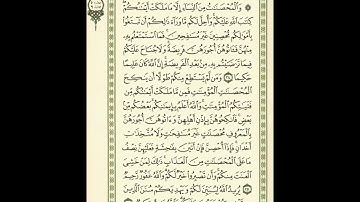 وَٱلۡمُحۡصَنَٰتُ مِنَ ٱلنِّسَآءِ إِلَّا مَا مَلَكَتۡ أَيۡمَٰنُكُمۡۖ
كِتَٰبَ ٱللَّهِ عَلَيۡكُمۡۚ وَأُحِلَّ لَكُم مَّا وَرَآءَ ذَٰلِكُمۡ أَن تَبۡتَغُواْ
بِأَمۡوَٰلِكُم مُّحۡصِنِينَ غَيۡرَ مُسَٰفِحِينَۚ فَمَا ٱسۡتَمۡتَعۡتُم بِهِۦ
مِنۡهُنَّ فَـَٔاتُوهُنَّ أُجُورَهُنَّ فَرِيضَةٗۚ وَلَا جُنَاحَ عَلَيۡكُمۡ
فِيمَا تَرَٰضَيۡتُم بِهِۦ مِنۢ بَعۡدِ ٱلۡفَرِيضَةِۚ إِنَّ ٱللَّهَ كَانَ عَلِيمًا
حَكِيمٗا ٢٤ وَمَن لَّمۡ يَسۡتَطِعۡ مِنكُمۡ طَوۡلًا أَن يَنكِحَ
ٱلۡمُحۡصَنَٰتِ ٱلۡمُؤۡمِنَٰتِ فَمِن مَّا مَلَكَتۡ أَيۡمَٰنُكُم مِّن
فَتَيَٰتِكُمُ ٱلۡمُؤۡمِنَٰتِۚ وَٱللَّهُ أَعۡلَمُ بِإِيمَٰنِكُمۚ بَعۡضُكُم مِّنۢ
بَعۡضٖۚ فَٱنكِحُوهُنَّ بِإِذۡنِ أَهۡلِهِنَّ وَءَاتُوهُنَّ أُجُورَهُنَّ
بِٱلۡمَعۡرُوفِ مُحۡصَنَٰتٍ غَيۡرَ مُسَٰفِحَٰتٖ وَلَا مُتَّخِذَٰتِ
أَخۡدَانٖۚ فَإِذَآ أُحۡصِنَّ فَإِنۡ أَتَيۡنَ بِفَٰحِشَةٖ فَعَلَيۡهِنَّ نِصۡفُ
مَا عَلَى ٱلۡمُحۡصَنَٰتِ مِنَ ٱلۡعَذَابِۚ ذَٰلِكَ لِمَنۡ خَشِيَ
ٱلۡعَنَتَ مِنكُمۡۚ وَأَن تَصۡبِرُواْ خَيۡرٞ لَّكُمۡۗ وَٱللَّهُ غَفُورٞ رَّحِيمٞ
٢٥ يُرِيدُ ٱللَّهُ لِيُبَيِّنَ لَكُمۡ وَيَهۡدِيَكُمۡ سُنَنَ ٱلَّذِينَ